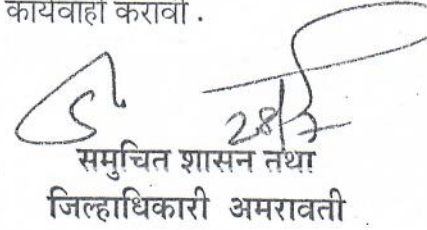 कार्यवाही करावी .
समुचित शासन तथा
जिल्हाधिकारी अमरावती